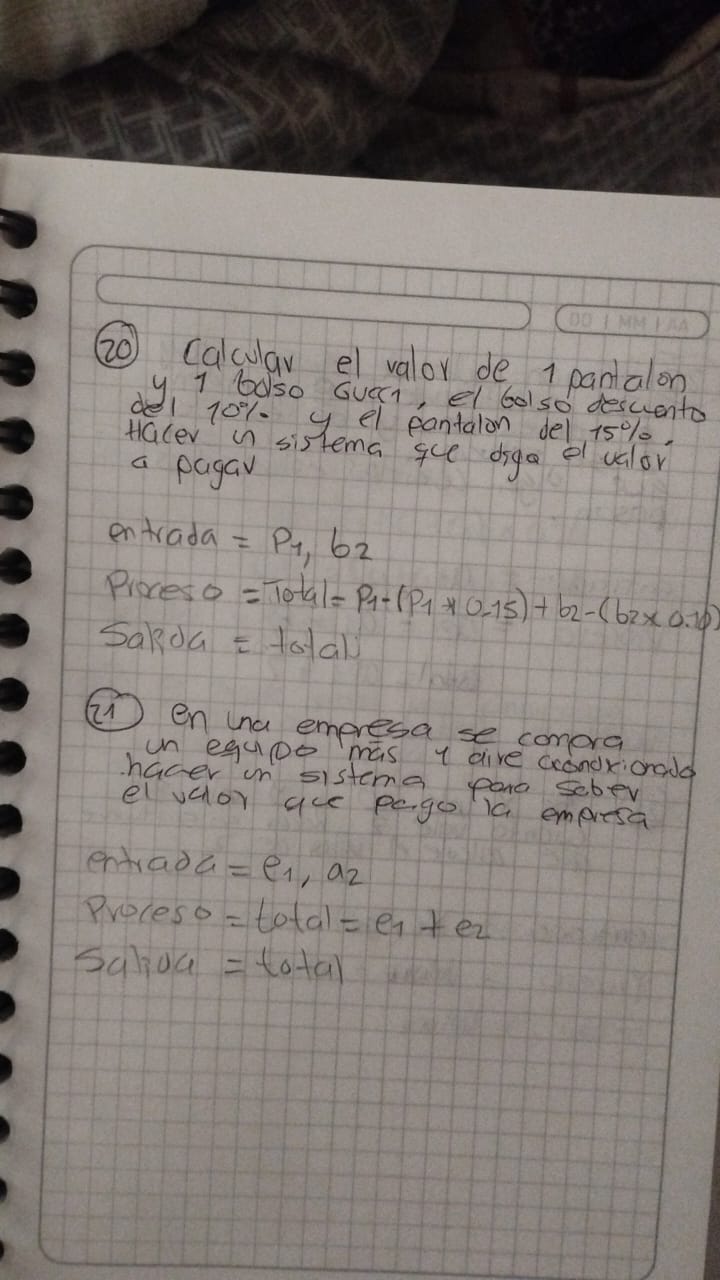 DD | MM | AA
20 Calcular el valor de 1 pantalon
y 1 bolso Gucci, el bolso descuento
del 10% y el pantalon del 15%.
Hacer un sistema que diga el valor
a pagar
entrada = P1, b2
Proceso = Total = P1-(P1*0.15)+b2-(b2x0.10)
Salida = total
21 en una empresa se compra
un equipo más 1 aire acondicionado
hacer un sistema para saber
el valor que pago la empresa
entrada = e1, a2
Proceso = total = e1 + e2
Salida = total